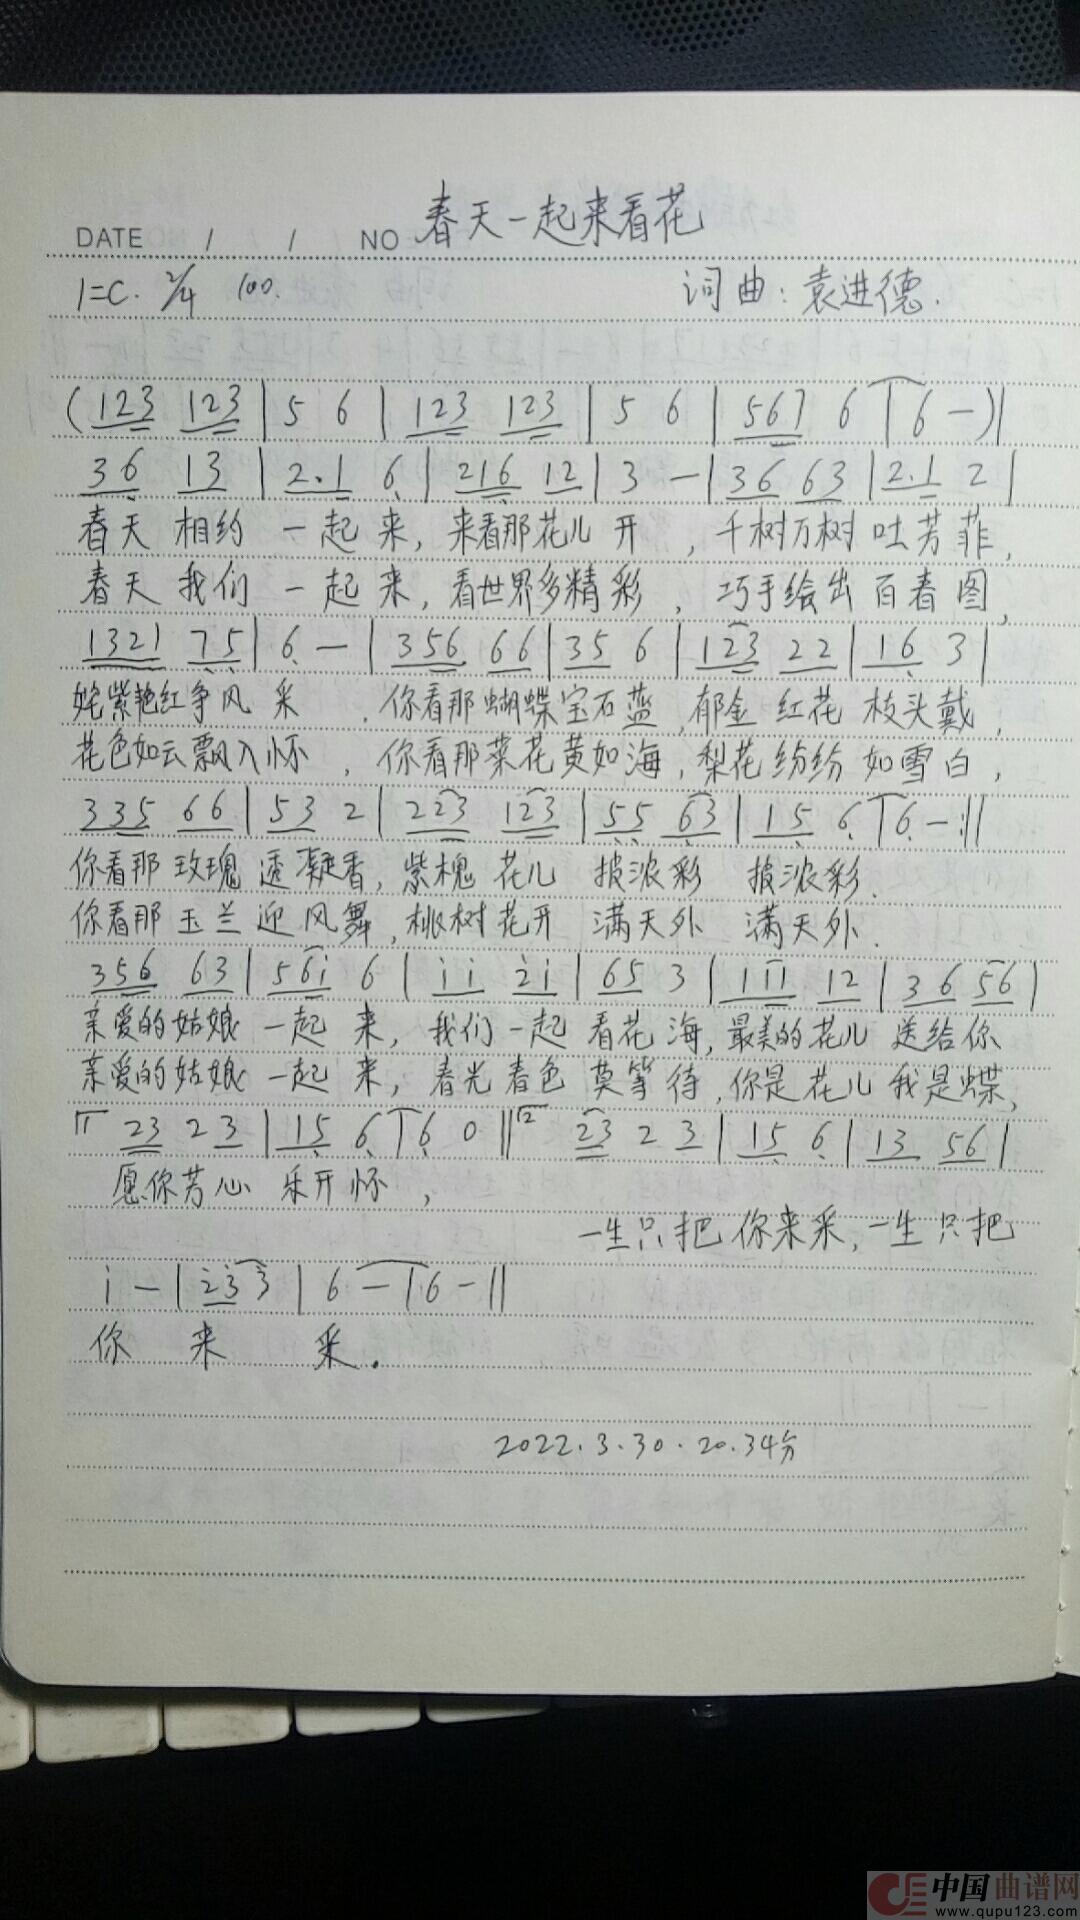 春天一起来看花
DATE / / NO
1=C. 2/4 100. 词曲：袁进德.
(123 123 | 5 6 | 123 123 | 5 6 | 567 6 | 6 —)|
36 13 | 2.1 6 | 216 12 | 3 — | 36 63 | 2.1 2 |
春天 相约 一起 来，来看那花儿 开 ，千树万树 吐芳菲，
春天 我们 一起 来，看世界多精彩 ，巧手绘出 百春图，
1321 75 | 6 — | 356 66 | 35 6 | 123 22 | 16 3 |
姹紫艳红争风 采 ，你看那蝴蝶宝石蓝，郁金 红花 枝头戴，
花色如云飘入怀 ，你看那菜花黄如海，梨花纷纷 如雪白，
335 66 | 53 2 | 223 123 | 55 63 | 15 6 | 6 — :||
你看那 玫瑰 透凝香，紫槐 花儿 披浓彩 披浓彩.
你看那 玉兰 迎风舞，桃树花开 满天外 满天外.
356 63 | 56i 6 | i i 2i | 65 3 | 111 12 | 36 56 |
亲爱的姑娘 一起 来，我们一起 看花海，最美的花儿 送给你
亲爱的姑娘 一起 来，春光春色 莫等待，你是花儿 我是蝶，
1 23 23 | 15 6 | 6 0 || 2 23 2 3 | 15 6 | 13 56 |
愿你芳心 乐开怀 ，
一生只把 你来采，一生只把
i — | 23 3 | 6 — | 6 — ||
你 来 采.
2022.3.30.20.34分
中国曲谱网
www.qupu123.com